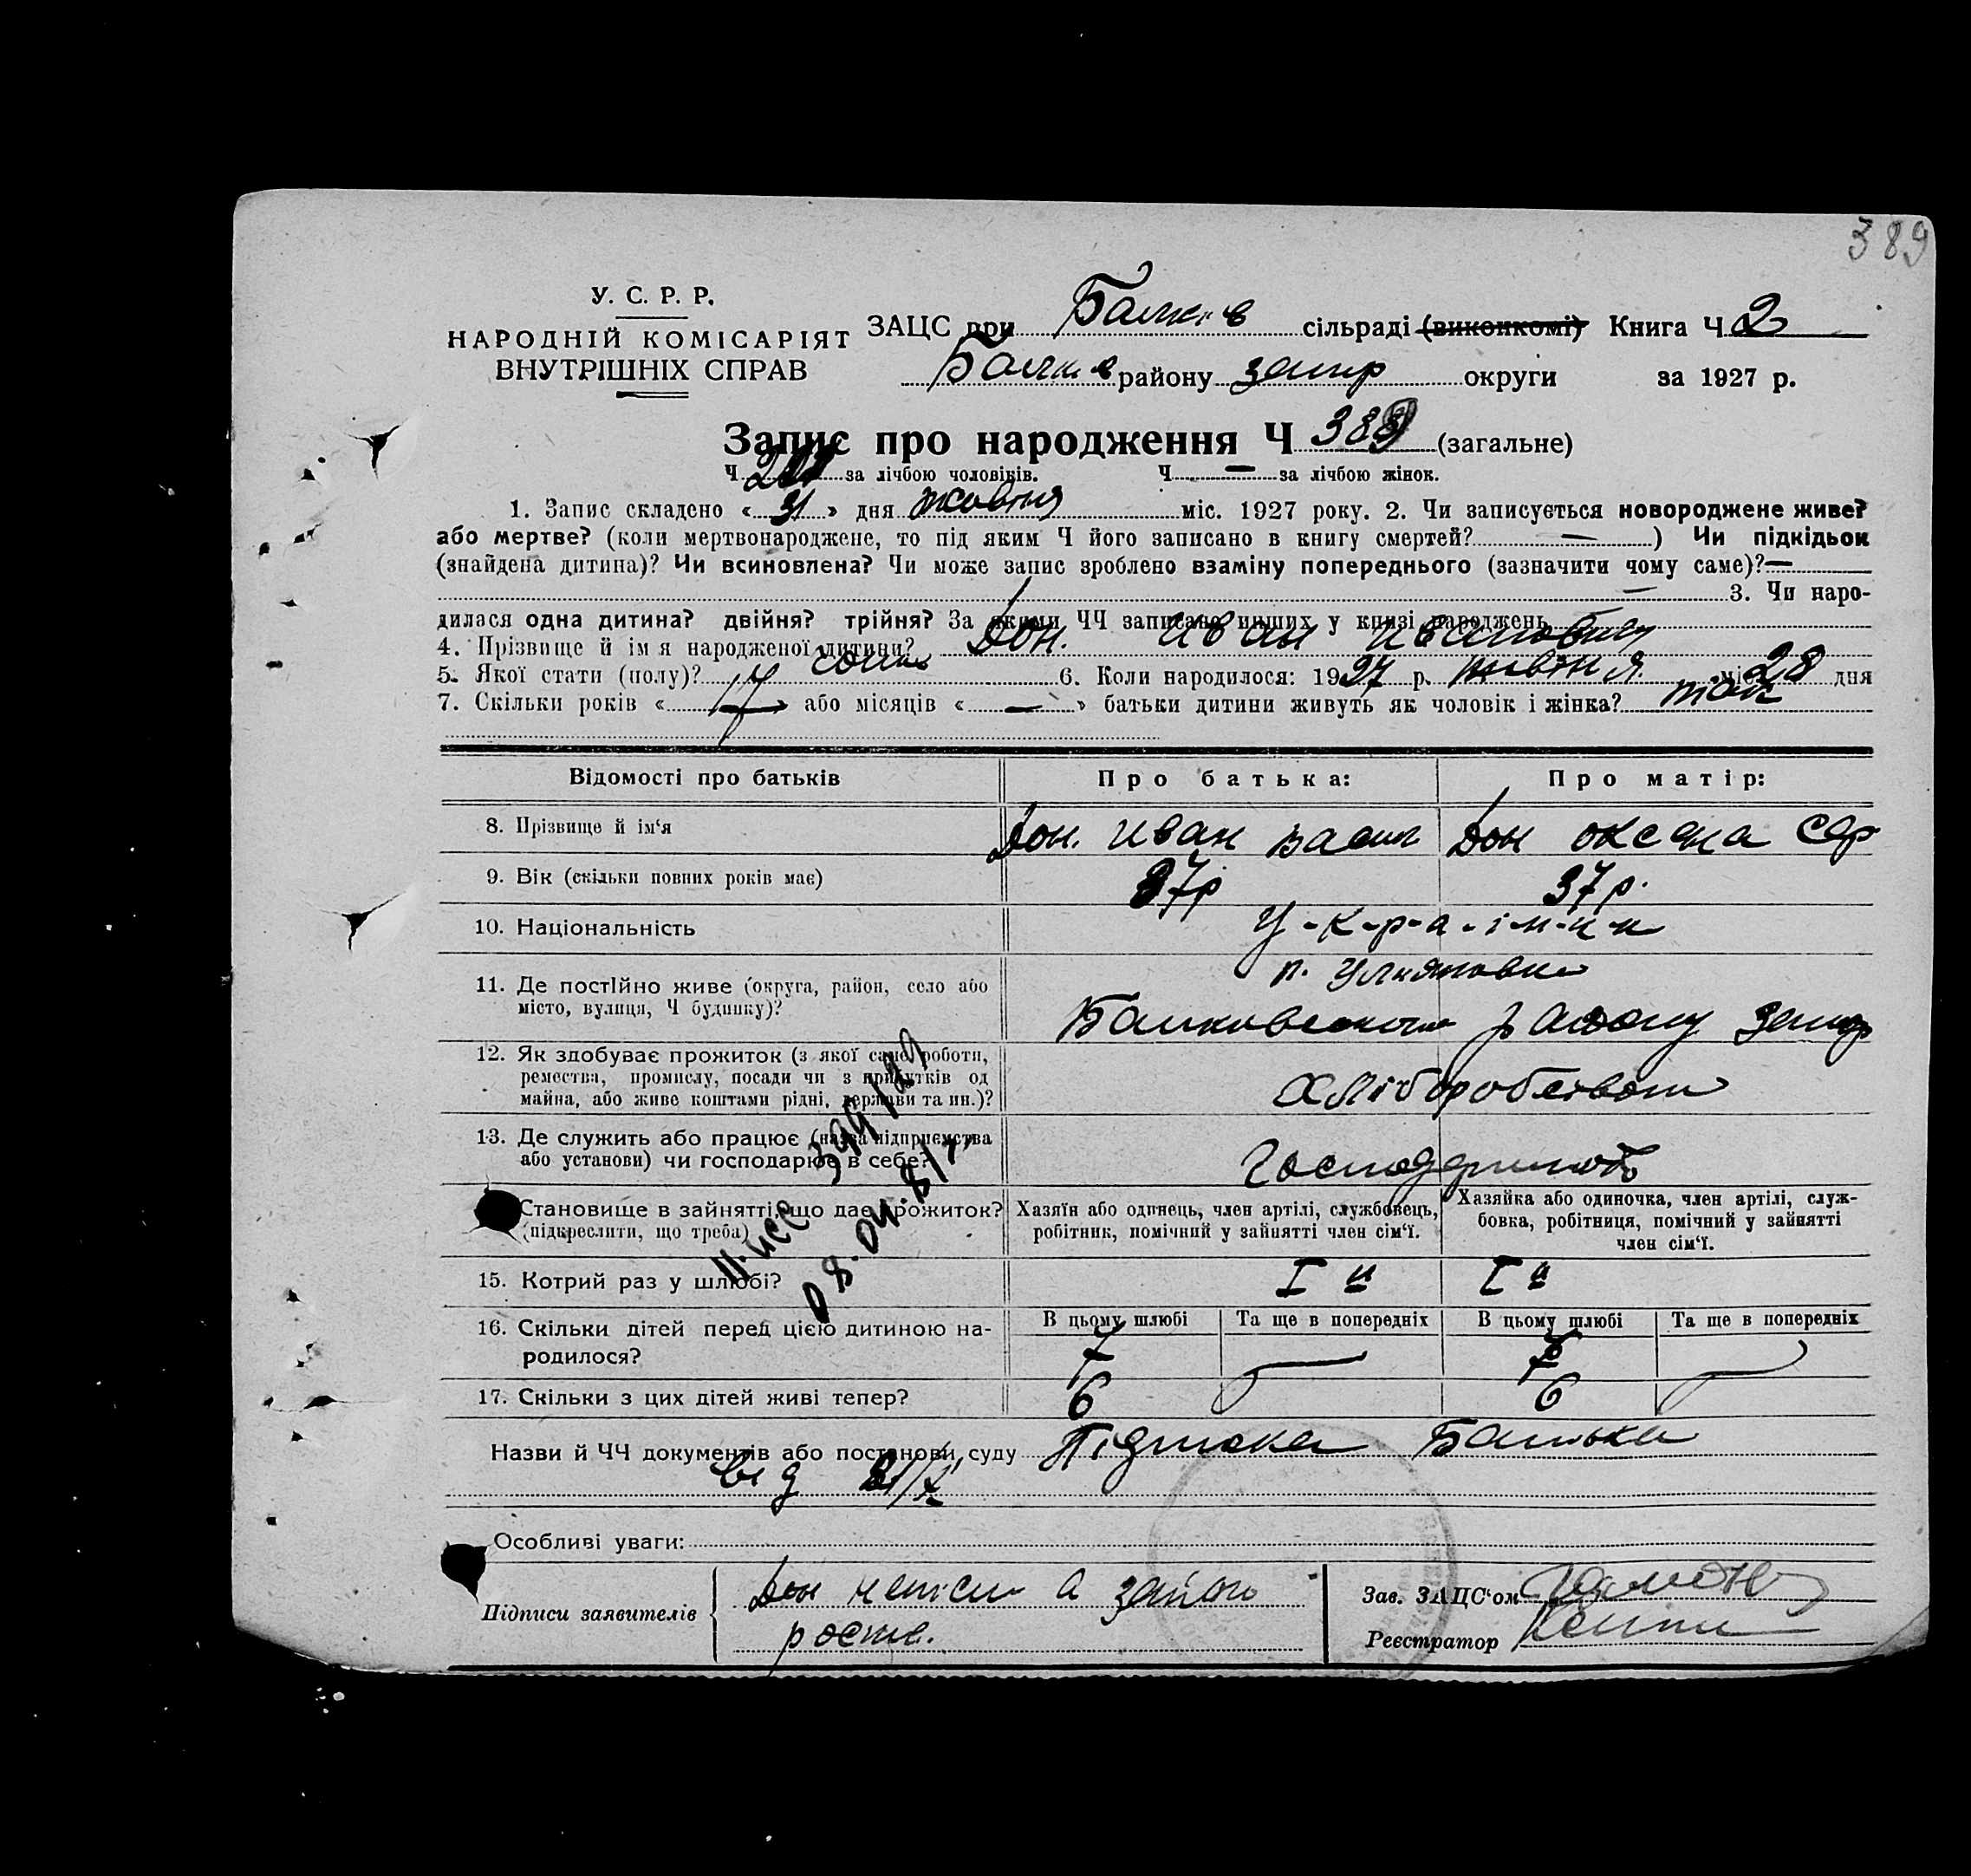 389
У. С. Р. Р.
НАРОДНІЙ КОМІСАРІЯТ
ВНУТРІШНІХ СПРАВ
ЗАЦС при Балків сільраді (виконкомі) Книга Ч 2
Балків району запр округи за 1927 р.
Запис про народження Ч 389 (загальне)
Ч. за лічбою чоловіків. Ч. — за лічбою жінок.
1. Запис складено « 31 » дня жовтня міс. 1927 року. 2. Чи записується новороджене живе?
або мертве? (коли мертвонароджене, то під яким Ч його записано в книгу смертей? — ) Чи підкідьок
(знайдена дитина)? Чи всиновлена? Чи може запис зроблено взаміну попереднього (зазначити чому саме)? —
— 3. Чи наро-
дилася одна дитина? двійня? трійня? За якими ЧЧ записано инших у книзі народжень
4. Прізвище й ім я народженої дитини? Дон. Иван Иванович
5. Якої стати (полу)? 6. Коли народилося: 1927 р. жовтня міс. 28 дня
7. Скільки років « 17 » або місяців « — » батьки дитини живуть як чоловік і жінка?
Відомості про батьків Про батька: Про матір:
8. Прізвище й ім‘я Дон. Иван Васил Дон Оксана
9. Вік (скільки повних років має) 37р 37р.
10. Національність У-к-р-а-ї-н-ц-и
11. Де постійно живе (округа, район, село або
місто, вулиця, Ч будинку)? п. Улияновка
Балковского району запр
12. Як здобуває прожиток (з якої саме роботи,
ремества, промислу, посади чи з прибутків од
майна, або живе коштами рідні, держави та ин.)? Хліборобством
13. Де служить або працює (назва підприємства
або установи) чи господарює в себе?
Становище в зайнятті, що дає прожиток?
(підкреслити, що треба)
Хазяїн або одинець, член артілі, службовець,
робітник, помічний у зайнятті член сім‘ї.
Хазяйка або одиночка, член артілі, служ-
бовка, робітниця, помічний у зайнятті
член сім‘ї.
15. Котрий раз у шлюбі? I й I й
16. Скільки дітей перед цією дитиною на-
родилося?
В цьому шлюбі Та ще в попередніх В цьому шлюбі Та ще в попередніх
7 — 7 —
17. Скільки з цих дітей живі тепер? 6 6
Назви й ЧЧ документів або постанови суду Підписка Батька
від 31/X
Особливі уваги:
Підписи заявителів Дон
Зав. ЗАЦС‘ом
Реєстратор